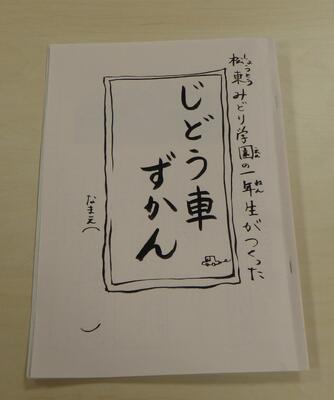 松東みどり学園の一年生がつくった
じどう車
ずかん
なまえ（　　　）